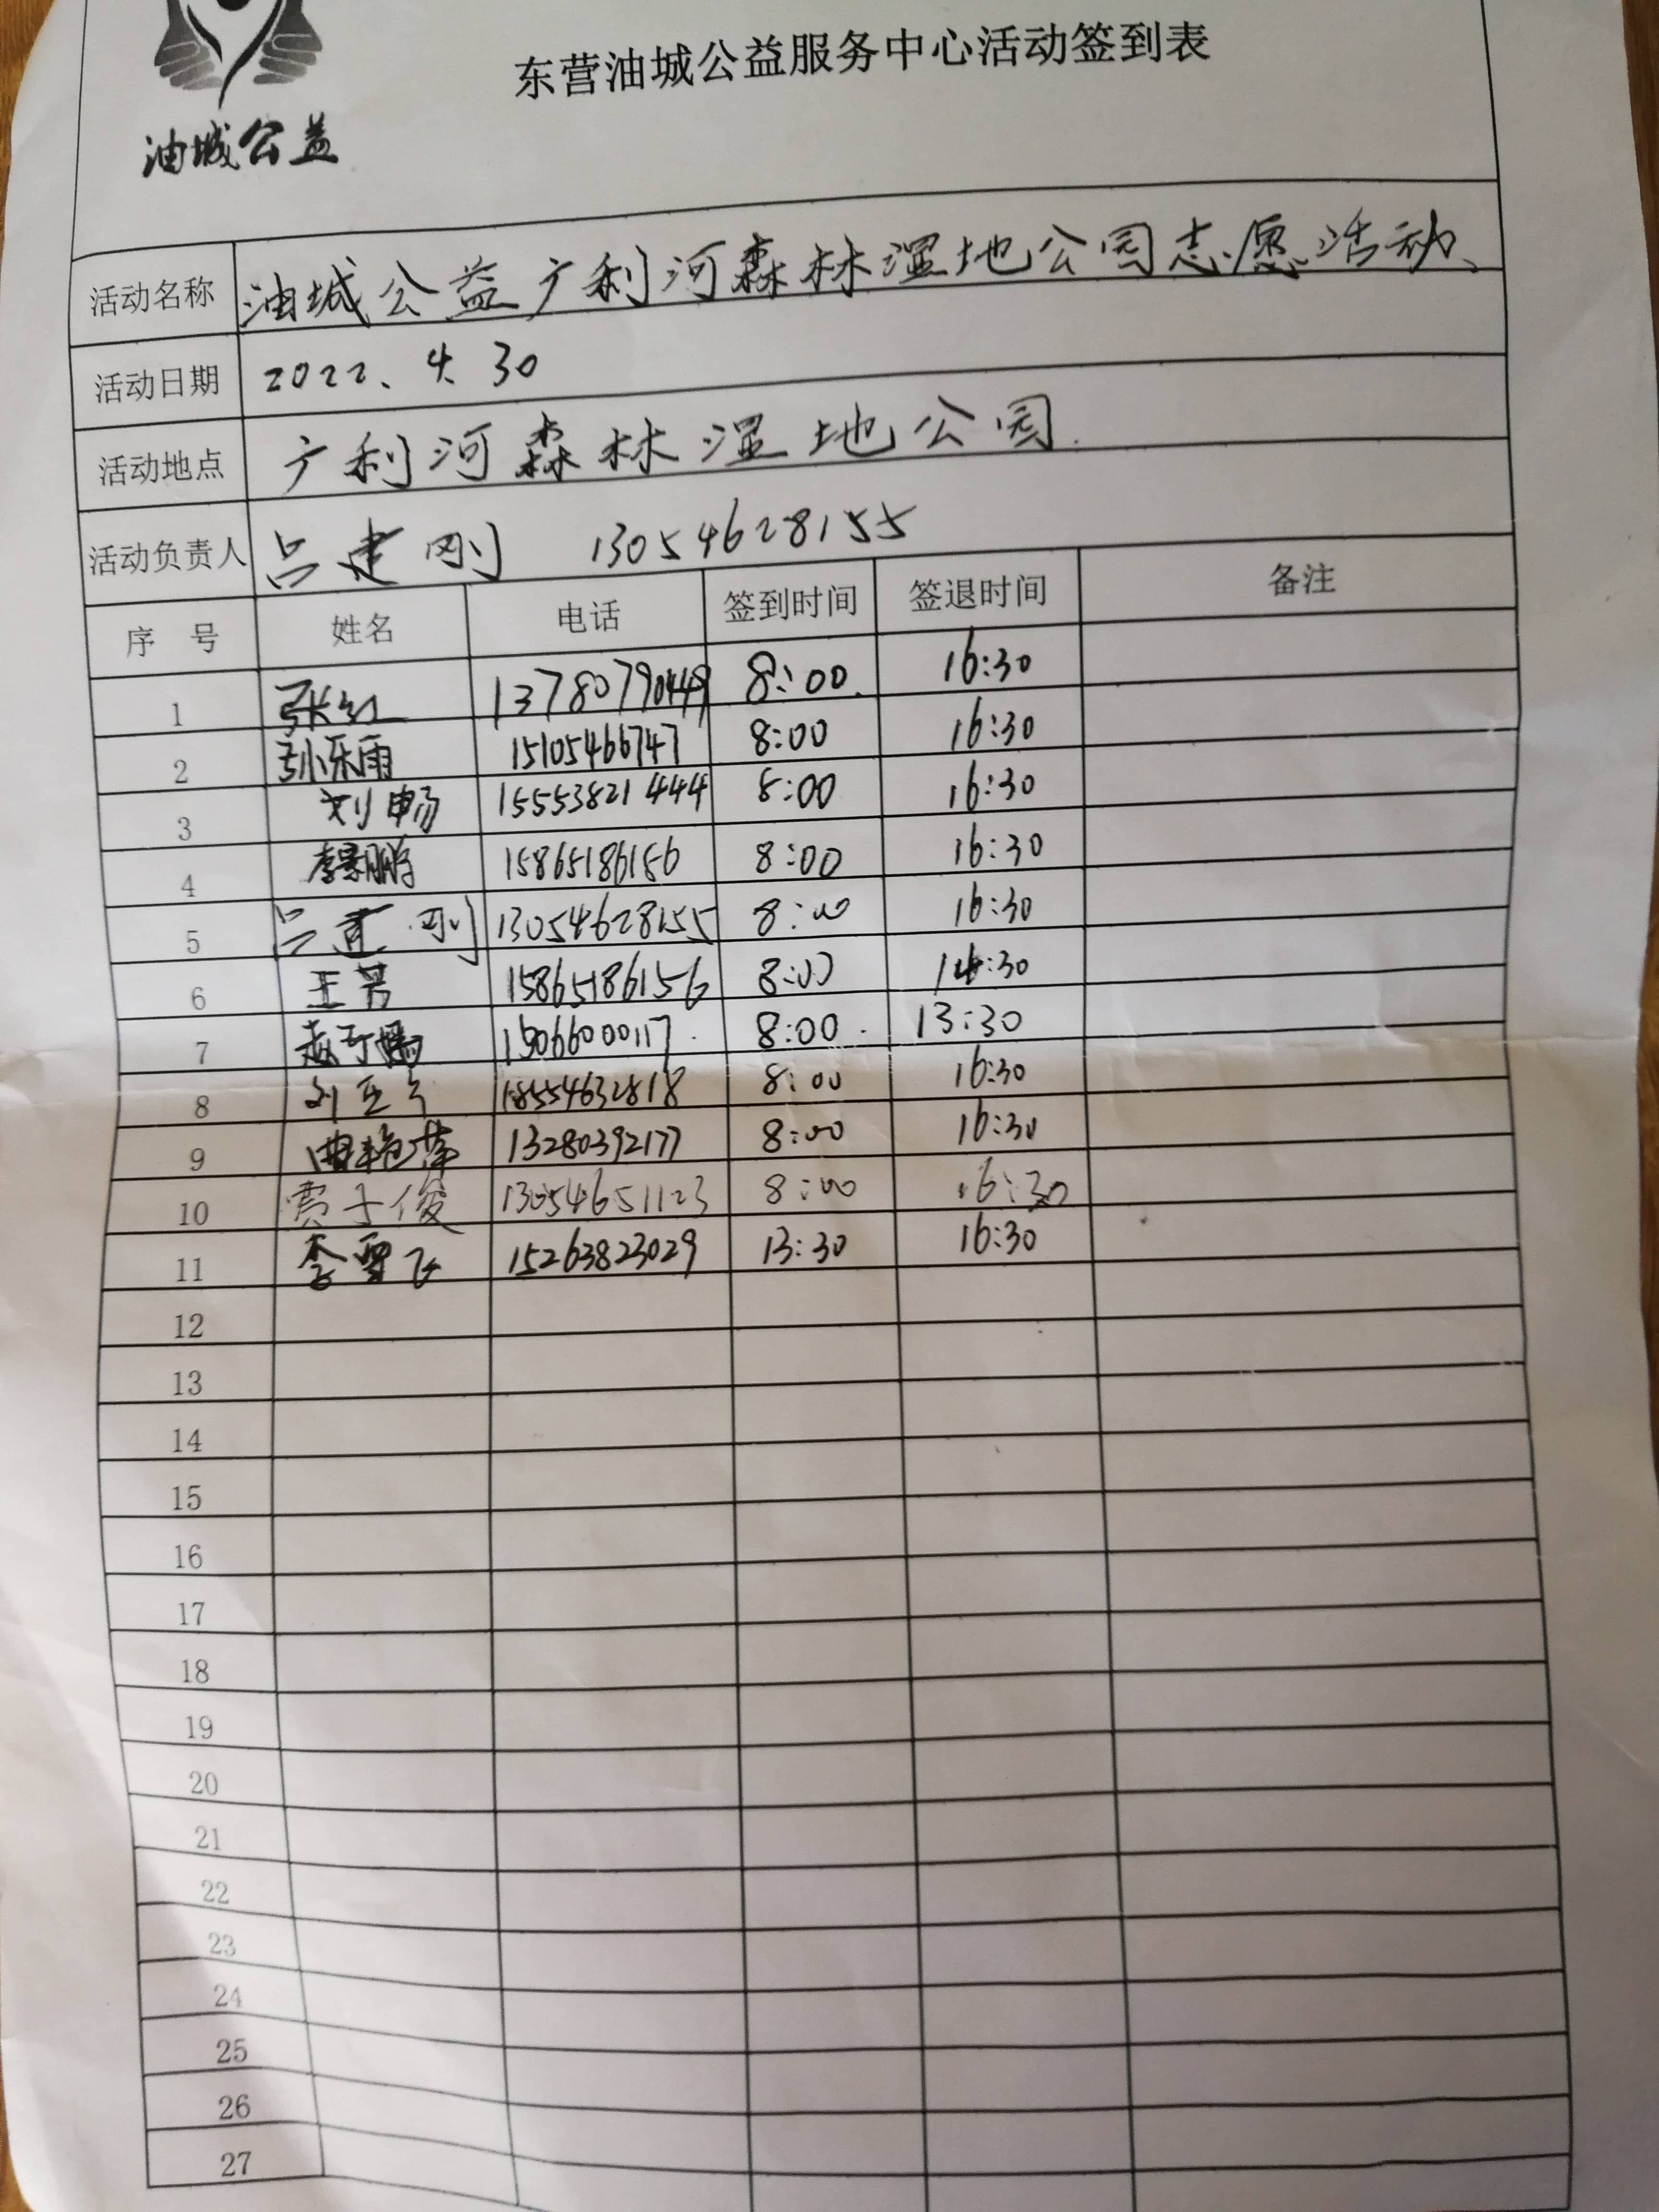 东营油城公益服务中心活动签到表
油城公益
活动名称 油城公益广利河森林湿地公园志愿活动
活动日期 2022、4、30
活动地点 广利河森林湿地公园
活动负责人 吕建刚 13054628155
序 号 姓名 电话 签到时间 签退时间 备注
1 张红 13780790449 8:00 16:30
2 孙乐雨 15105466747 8:00 16:30
3 刘畅 15553821444 8:00 16:30
4 李景鹏 15865186156 8:00 16:30
5 吕建刚 13054628155 8:00 16:30
6 王芳 15865186156 8:00 14:30
7 15066000117 8:00 13:30
8 18554632818 8:00 16:30
9 曲艳萍 13280392177 8:00 16:30
10 贾子俊 13054651123 8:00 16:30
11 李雪飞 15263823029 13:30 16:30
12
13
14
15
16
17
18
19
20
21
22
23
24
25
26
27